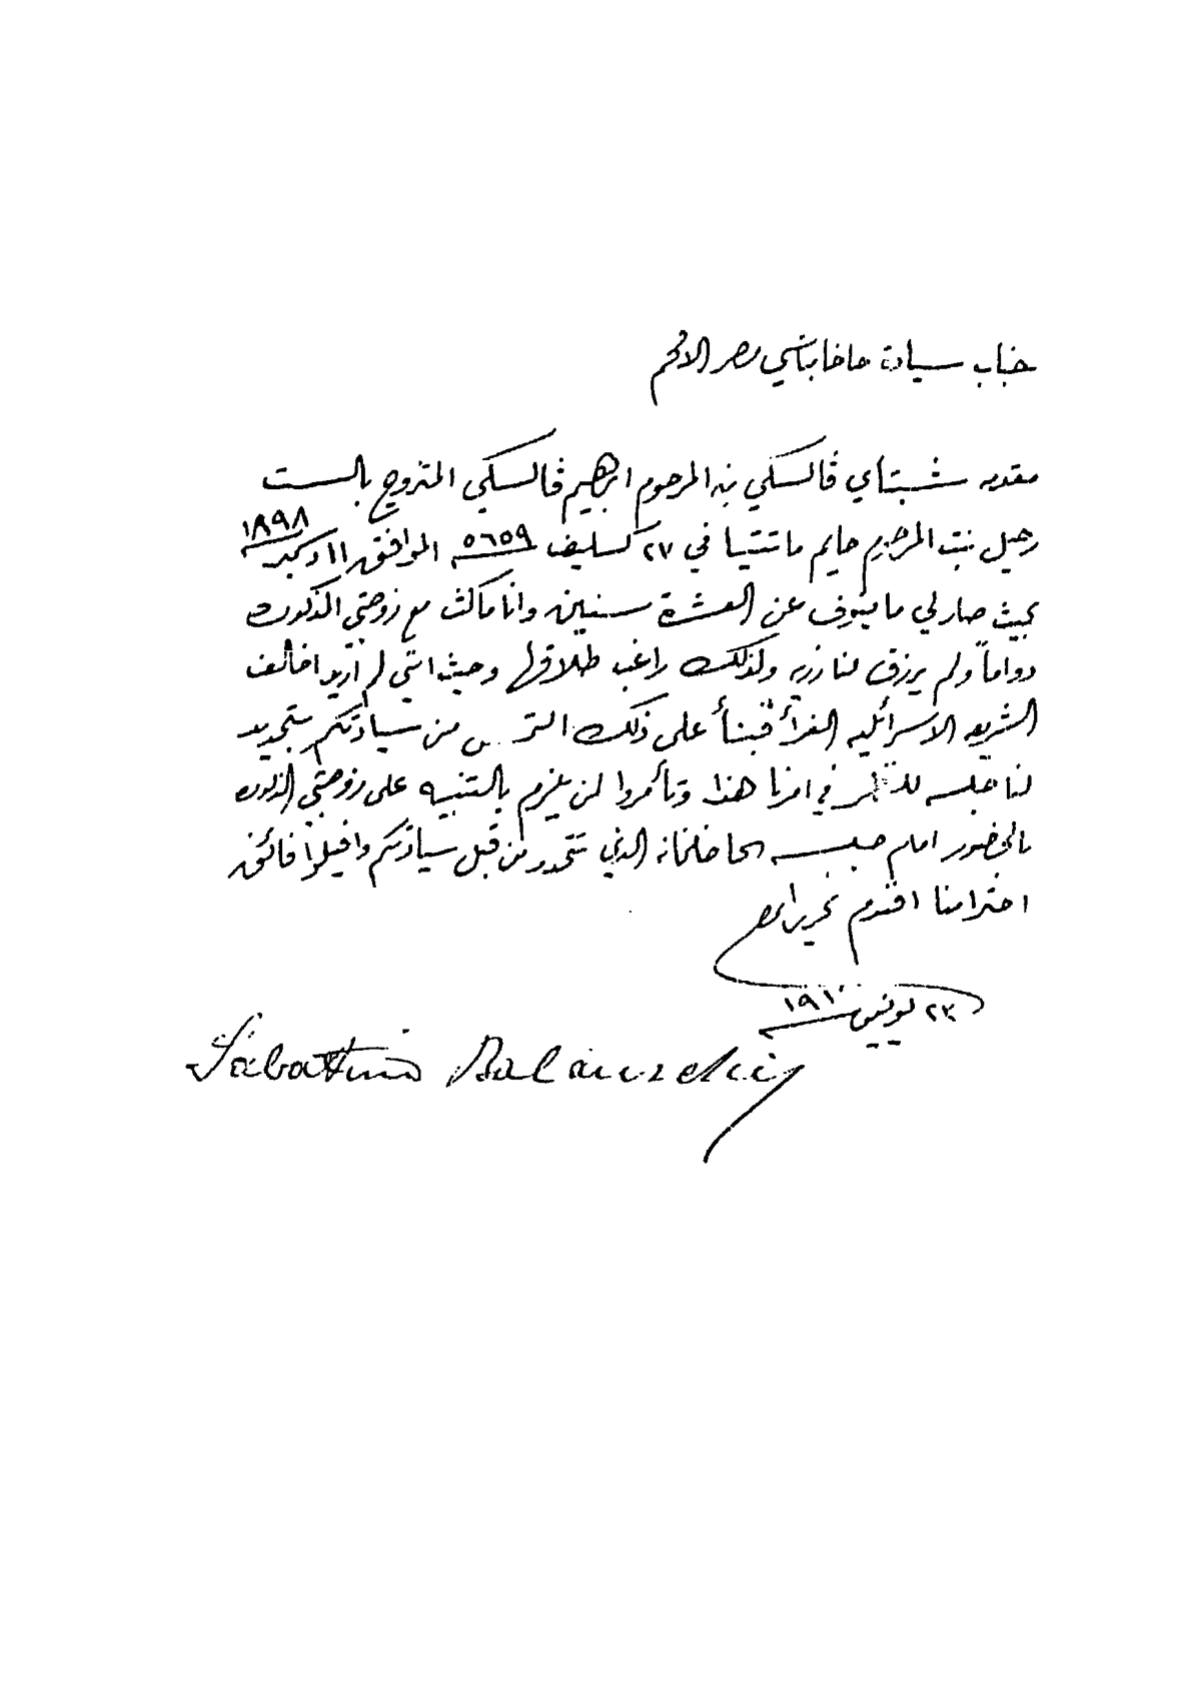 جناب سيادة حاخام باشي مصر الافخم
مقدمه شبتاي ڤالسكي بن المرحوم ابرهيم ڤالسكي المتزوج بالست
رحيل بنت المرحوم حايم ماتتيا في ٢٧ كسليف ٥٦٥٩ الموافق ١١ دكمبر ١٨٩٨
بحيث صار لي ما ينوف عن العشرة سنين وانا ماكث مع زوجتي المذكوره
دواماً ولم يرزق لنا ذريه ولذلك راغب طلاقها وحيث انني لم اريد اخالف
الشريعه الاسرائليه الغرأ فبنأ على ذلك من سيادتكم بتحديد
لنا جلسه للنظر في امرنا هذا وتأمروا لمن يلزم بالتنبيه على زوجتي المذكوره
بالحضور امام جلسه الحاخامخانه الذي تتحدد من قبل سيادتكم واقبلوا فائق
احترامنا افندم تحريرا بمصر
٢٣ يونيو ١٩١٠
Sabattino